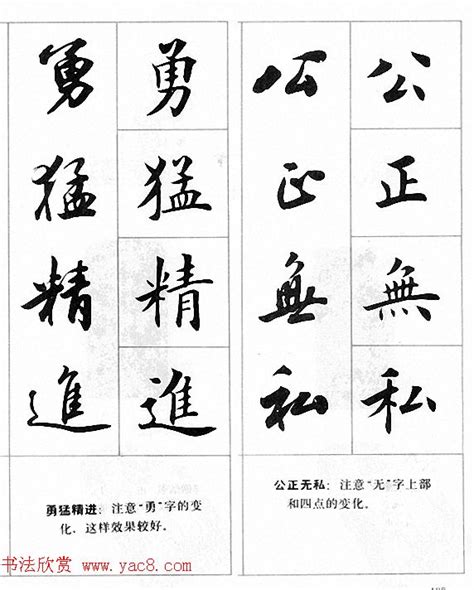 公正無私
公正無私
公正无私：注意“无”字上部
和四点的变化。
勇猛精進
勇猛精進
勇猛精进：注意“勇”字的变
化，这样效果较好。
书法欣赏 www.yac8.com